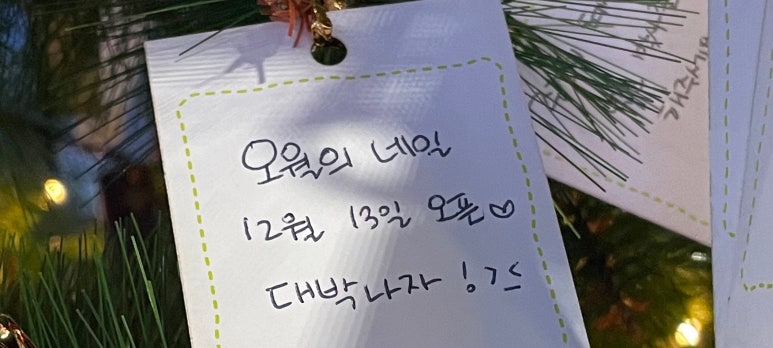 오월의 네일
12월 13일 오픈♡
대박나자 ! ㄱ≤